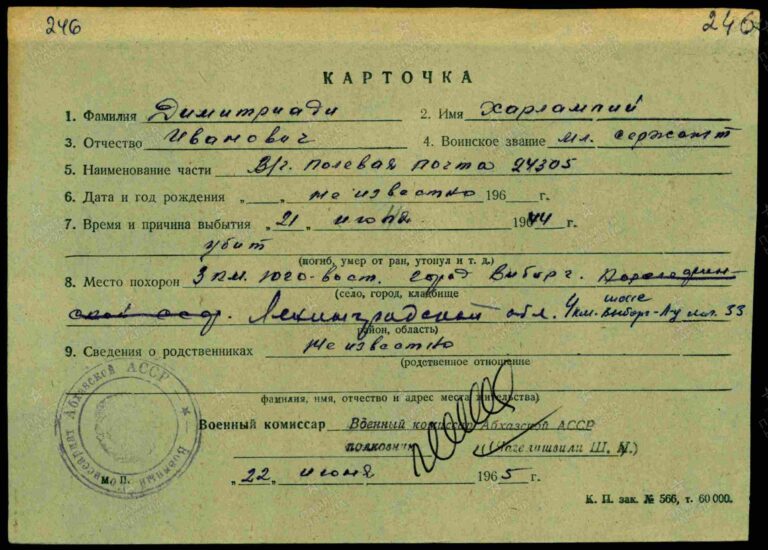 246
246
КАРТОЧКА
1. Фамилия Димитриади 2. Имя Харлампий
3. Отчество Иванович 4. Воинское звание мл. сержант
5. Наименование части В/ч. полевая почта 24305
6. Дата и год рождения „ „ не известно 196 г.
7. Время и причина выбытия „21„ июня 1944 г.
убит
(погиб, умер от ран, утонул и т. д.)
8. Место похорон 3 км. юго-вост. город Виборг.
(село, город, кладбище
ской сср. Ленинградской обл. 4км. шоссе Выборг-
район, область)
9. Сведения о родственниках не известно
(родственное отношение
фамилия, имя, отчество и адрес места жительства)
Военный комиссар Военный комиссар Абхазской АССР
полковник
Ш. И.)
М. П. „22„ июня 1965 г.
Военный Комиссариат Абхазской АССР
К. П. зак. № 566, т. 60 000.